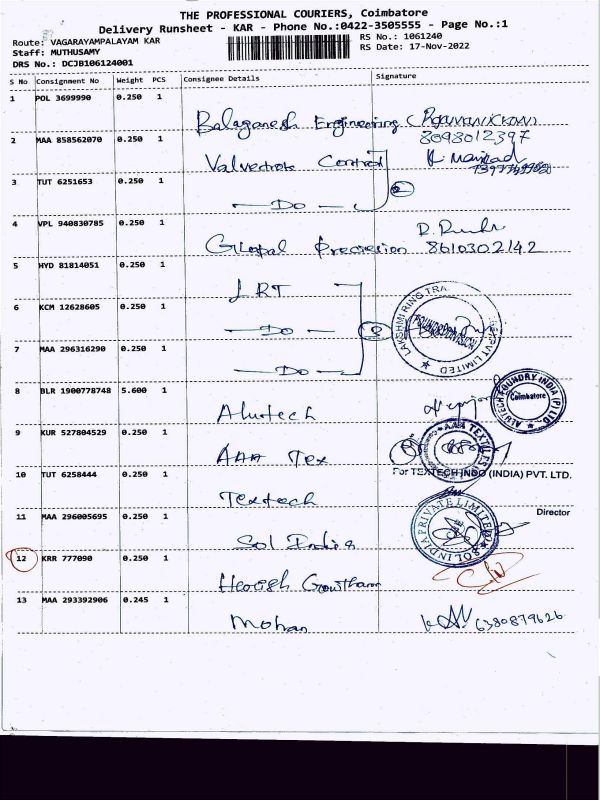 THE PROFESSIONAL COURIERS, Coimbatore
Delivery Runsheet - KAR - Phone No.:0422-3505555 - Page No.:1
Route: VAGARAYAMPALAYAM KAR
RS No.: 1061240
Staff: MUTHUSAMY
RS Date: 17-Nov-2022
DRS No.: DCJB106124001
S No Consignment No Weight PCS Consignee Details Signature
1 POL 3699990 0.250 1
Balaganesh Engineering
8098012397
2 MAA 858562070 0.250 1
Control
3 TUT 6251653 0.250 1
Do 2
4 VPL 940830785 0.250 1
Precision 8610302142
5 HYD 81814051 0.250 1
LRT
6 KCM 12628605 0.250 1
Do
7 MAA 296316290 0.250 1
Do
8 BLR 1900778748 5.600 1
Alutech
ALUTECH FOUNDRY INDIA (P) LTD.
Coimbatore
9 KUR 527804529 0.250 1
AAA Tex
AAA TEXTILES
10 TUT 6258444 0.250 1
For TEXTECH INDO (INDIA) PVT. LTD.
Textech
11 MAA 296005695 0.250 1
Director
Sol India
SOL INDIA PRIVATE LIMITED
12 KRR 777090 0.250 1
13 MAA 293392906 0.245 1
Mohan
6380879626